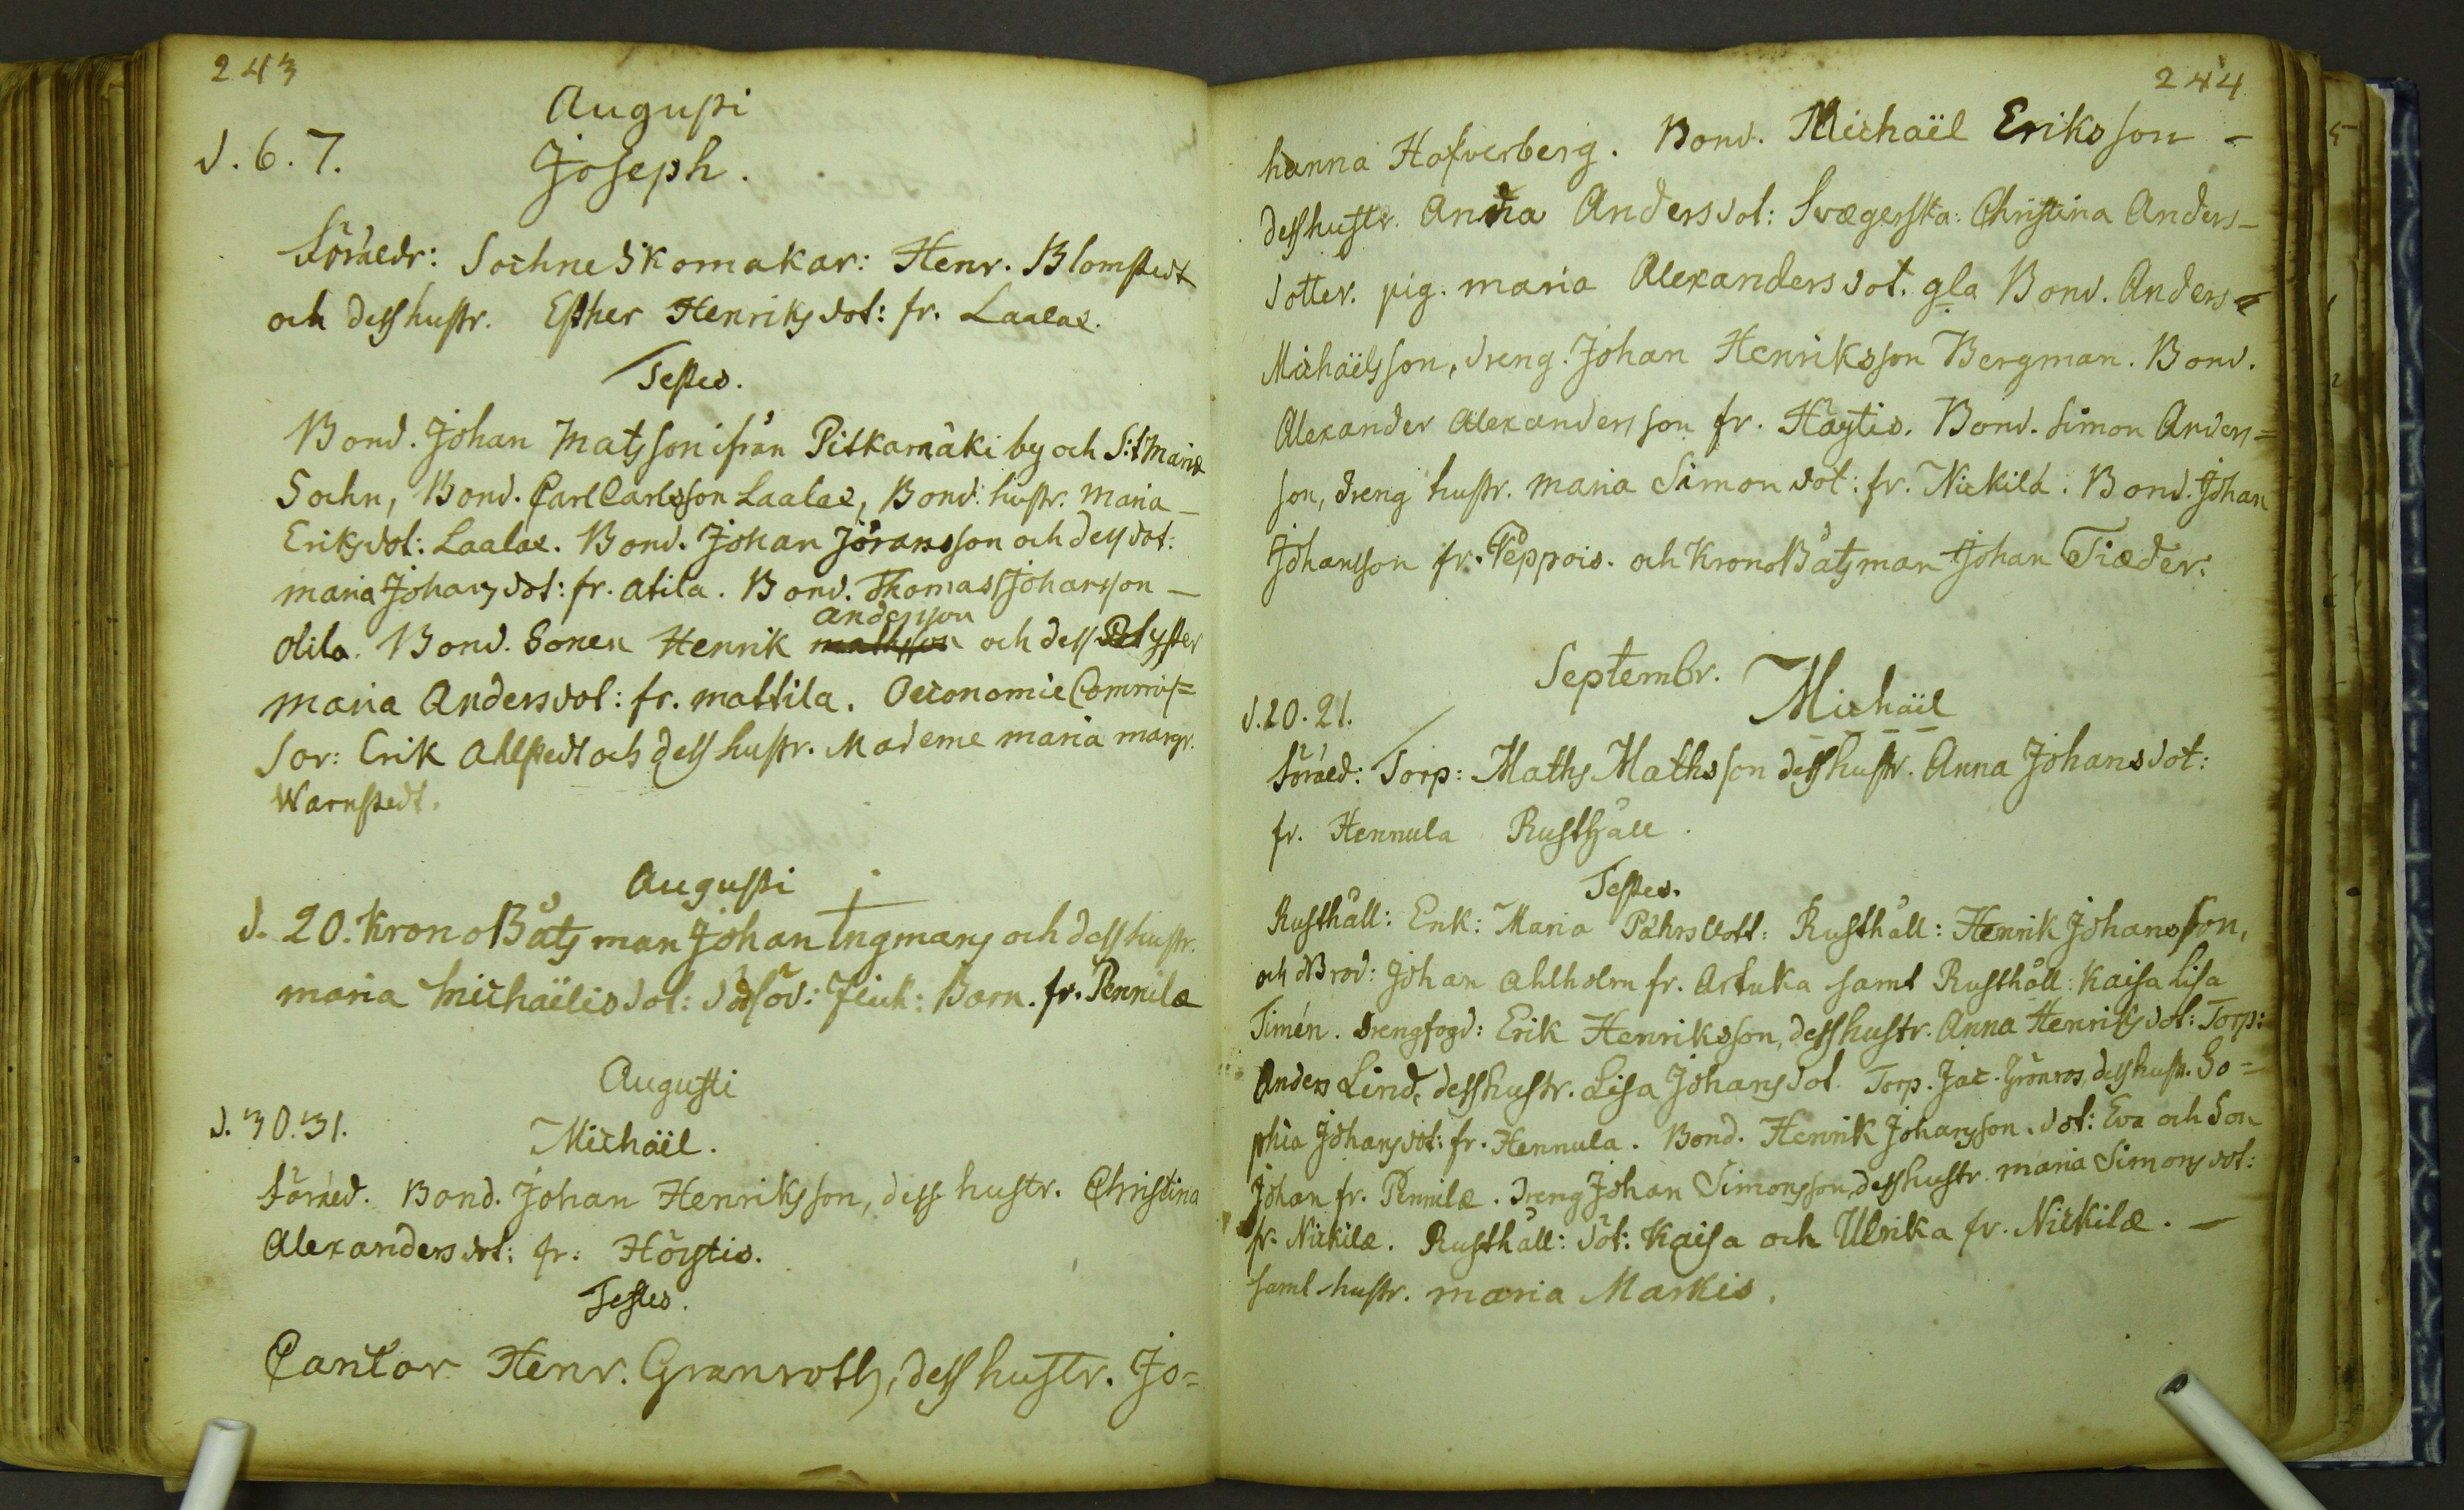 243
Augusti
d. 6. 7.
Joseph.
Föräldr: Sochne Skomakar: Henr. Blomstedt
och dess hustr. Esther Henriks dot: fr. Laalax.
Testes.
Bond. Johan Matsson ifrån Pitkämäki by och S:t Mariæ
Sochn, Bond. Carl Carlsson Laalax, Bond. hustr. Maria
Eriksdot: Laalax. Bond. Johan Jöransson och dess dot:
Maria Johans dot: fr. Atila. Bond. Thomas Johansson
Olila. Bond. Sonen Henrik Andersson och dess Syster
Maria Andersdot: fr. Mattila. Oeconomie Commis=
sor: Erik Ahlstedt och dess hustr. Mademe Maria Margr.
Warnstedt.
Augusti
d. 20. Krono Båtsman Johan Ingmans och dess hustr.
Maria Michaëlis dot: dödföd: flick: Barn. fr. Pennilæ
Augusti
d. 30. 31.
Michaël.
Föräld. Bond. Johan Henriksson, dess hustr. Christina
Alexanders dot: fr: Höystis.
Testes.
Cantor Henr. Granroth, dess hustr. Jo=
244
hanna Hofverberg. Bond. Michaël Eriksson -
dess hustr. Anna Andersdot: Svægerska: Christina Anders-
dotter. pig. Maria Alexanders dot. gla Bond. Anders
Michaëlsson, dreng. Johan Henriksson Bergman. Bond.
Alexander Alexandersson fr. Höytis. Bond. Simon Anders=
son, dreng hustr. Maria Simons dot: fr. Nickilä. Bond. Johan
Johansson fr. Peppois. och Krono Båtsman Johan Tiæder.
Septembr.
d. 20. 21.
Michaël
Föräld: Torp: Maths Mathsson dess hustr. Anna Johansdot:
fr. Hennula Rusthåll.
Testes.
Rusthåll: Enk: Maria Påhrs dott: Rusthåll: Henrik Johansson,
och Brod: Johan Ahlholm fr. Artuka samt Rusthåll: Kaisa Lisa
Timén. drengfogd: Erik Henriksson, dess hustr. Anna Henriks dot: Torp:
Anders Lind, dess hustr. Lisa Johans dot. Torp. Jac. Grönros, dess hustr. So=
phia Johans dot: fr. Hennula. Bond. Henrik Johansson. dot: Eva och Son
Johan fr. Pennilæ. dreng Johan Simonsson, dess hustr. Maria Simons dot:
fr. Nickilæ. Rusthåll: döt: Kaisa och Ulrika fr. Nickilæ. -
samt hustr. Maria Markis.